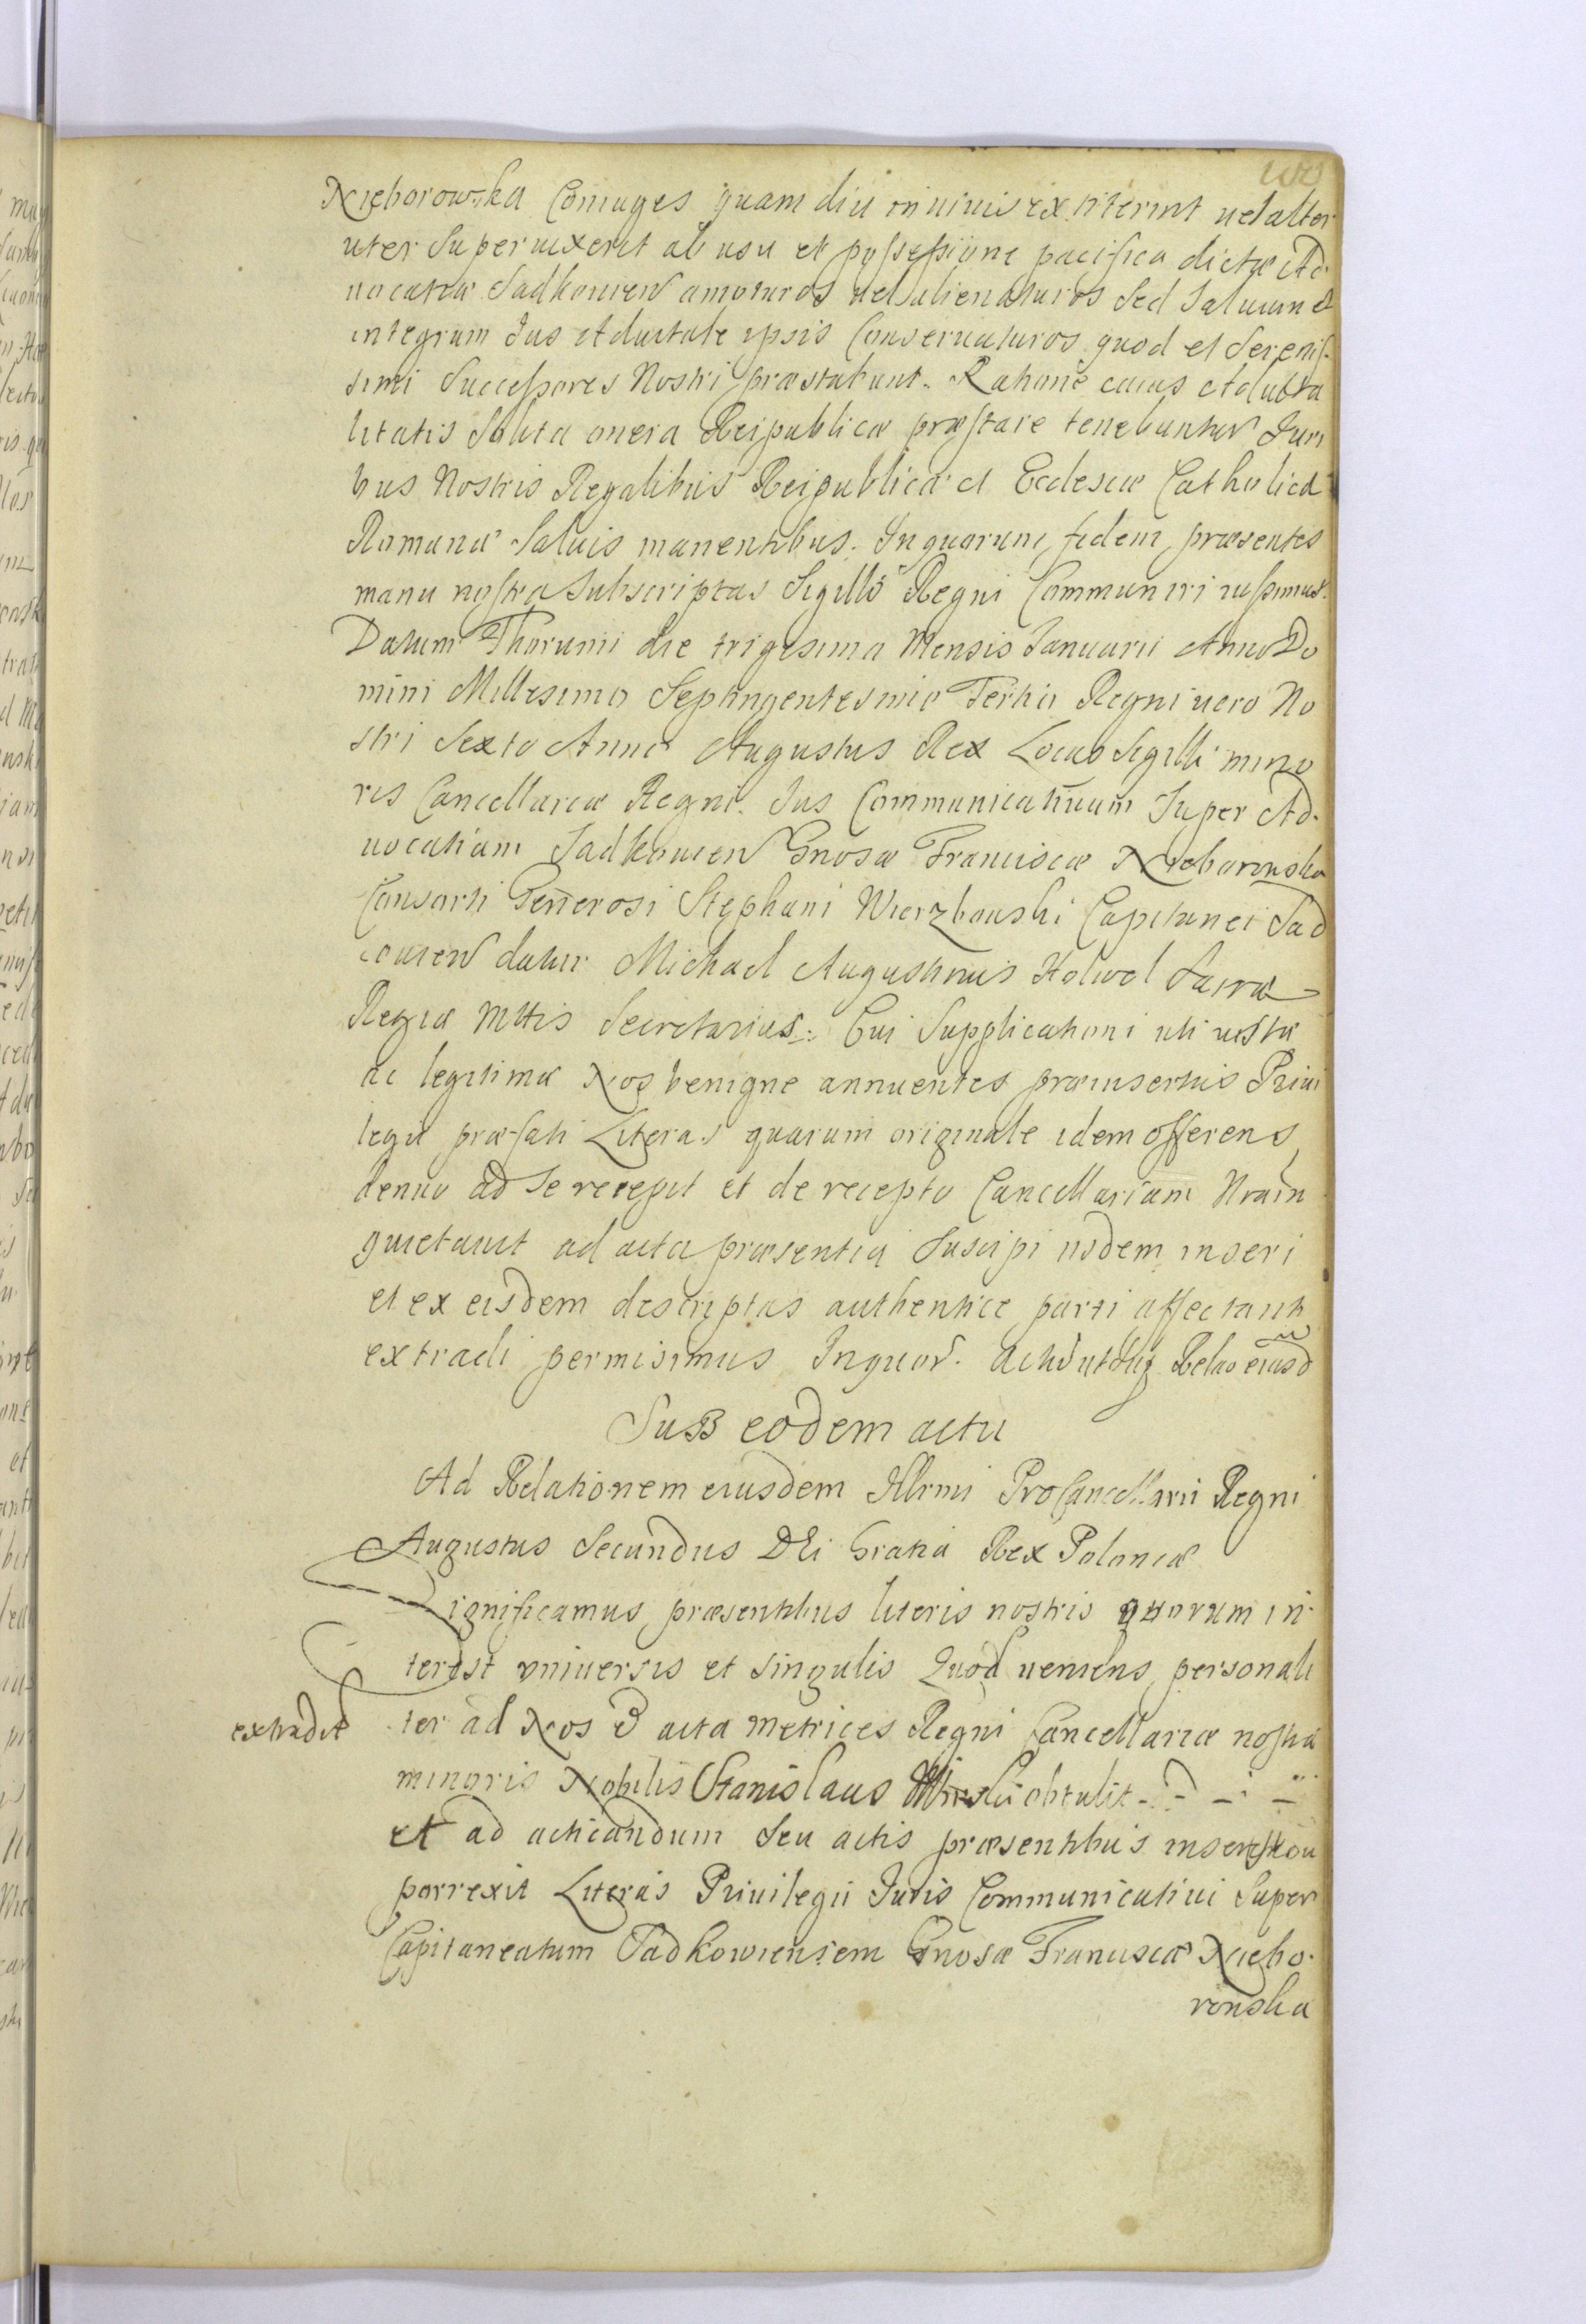 Nieborowska Coniuges quam diu in uiuis extiterint uel alter
uter Superuixerit ab usu et possessione pacifica dictæ Ad-
uocatiæ Sadkouien amoturos uel alienaturos Sed Saluum et
integrum Jus Aduitale ipsis Conseruaturos quod et Serenis-
simi Successores Nostri præstabunt. Ratione cuius Aduita
litatis Solita onera Reipublicæ præstare tenebuntur Juri
bus Nostris Regalibus Reipublicæ et Ecclesiæ Catholicæ
Romanæ Saluis manentibus. In quorum fidem præsentes
manu nostra Subscriptas Sigillo Regni Communiri iussimus.
Datum Thorunii die trigesima Mensis Januarii Anno Do
mini Millesimo Septingentesimo Tertio Regni uero No
stri Sexto Anno Augustus Rex Locus Sigilli mino
ris Cancellariæ Regni. Jus Communicatiuum Super Ad-
uocatiam Sadkouien Gnosæ Franciscæ Nieborowska
Consorti Generosi Stephani Wierzbowski Capitanei Sad
couien datur Michael Augustinus Holwel Sacræ
Regiæ Mttis Secretarius. Cui Supplicationi uti iustæ
ac legitimæ Nos benigne annuentes præinsertis Priui
legii præfati Literas quarum originale idem offerens
denuo ad Se recepit et de recepto Cancellariam Nram
quietauit ad acta præsentia Suscipi iisdem inseri
et ex eisdem descriptas authentice parti affectanti
extradi permisimus In quor. Relao eiusd
SuB eodem actu
Ad Relationem eiusdem Illrmi ProCancellarii Regni
Augustus Secundus DEi Gratia Rex Poloniæ
Significamus præsentibus literis nostris quorum in-
terest vniuersis et singulis Quod ueniens personali
extradit ter ad Nos & acta Metrices Regni Cancellariæ nostræ
minoris Nobilis Stanislaus obtulit
et ad acticandum Seu actis præsentibus
porrexit Literas Priuilegii Juris Communicatiui Super
Capitaneatum Sadkowiensem Gnosæ Franciscæ Niebo-
rowska